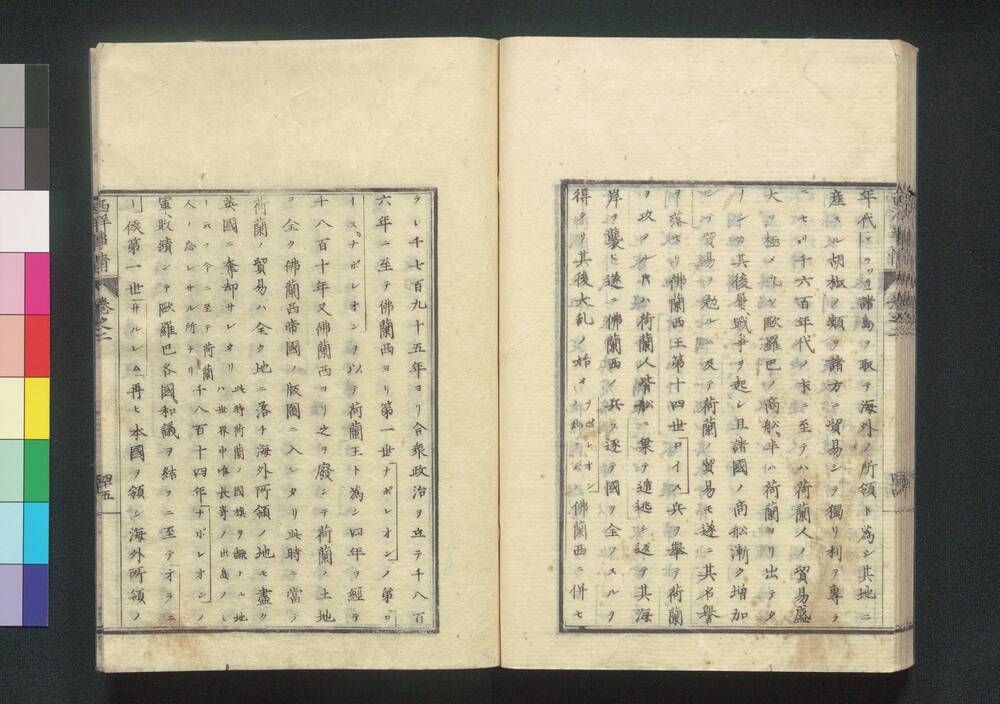 年代ニアツ立諸島ヲ取テ海外ノ所領ト為シ其地ニ
産スル胡椒ノ類ヲ諸方ニ貿易シテ獨リ利ヲ專ニ
セリ千六百年代ノ末ニ至テハ荷蘭人ノ貿易盛
大ヲ極メ凡ソ歐羅巴ノ商船、半ハ荷蘭ヨリ出テタ
リシガ其後屢戰爭ヲ起シ且諸國ノ商船漸ク增加
シテ貿易ヲ勉ルニ及テ荷蘭ノ貿易モ遂ニ其名譽
ヲ落セリ佛蘭西王第十四世ロイス兵ヲ舉テ荷蘭
ヲ攻ルトキハ荷蘭人皆船ニ乘テ遁逃シ返テ其海
岸ヲ襲ヒ遂ニ佛蘭西ノ兵ヲ逐テ國ヲ全フスルヲ
得タリ其後大乱ノ始メナポレオンノ乱ヲ云フ佛蘭西ニ併セ
ラレ千七百九十五年ヨリ合衆政治ヲ立テ千八百
六年ニ至テ佛蘭西ヨリ第一世ナポレオンノ弟ロ
イスナポレオンヲ以テ荷蘭王ト為シ四年ヲ經テ
千八百十年又佛蘭西ヨリ之ヲ廢シテ荷蘭ノ土地
ヲ全ク佛蘭西帝國ノ版圖ニ入レタリ此時ニ當テ
荷蘭ノ貿易ハ全ク地ニ落チ海外所領ノ地モ盡ク
英國ニ奪却サレタリ此時荷蘭ノ國旗ヲ飜ヘシタル地ハ世界中唯長崎ノ出島ノミ
ト云フ今ニ至テ荷蘭人ノ忘レサル所ナリ千八百十四年ナポレオン
軍敗績シテ歐羅巴各國和議ヲ結フニ至テオランニ
ー侯第一世井ルレム再ヒ本國ヲ領シ海外所領ノ
西洋事情
卷之二
四十五